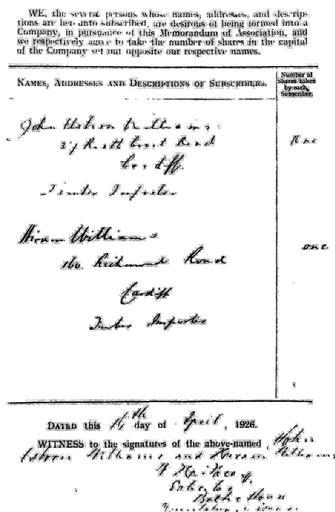 WE, the several persons whose names, addresses, and descrip-
tions are hereunto subscribed, are desirous of being formed into a
Company, in pursuance of this Memorandum of Association, and
we respectively agree to take the number of shares in the capital
of the Company set out opposite our respective names.
NAMES, ADDRESSES AND DESCRIPTIONS OF SUBSCRIBERS.
Number of
Shares taken
by each
Subscriber.
John Osborn Williams
Road
One
Cardiff
Timber Importer
Hiram Williams
one
160 Richmond Road
Cardiff
Timber Importer
DATED this 16th day of April, 1926.
WITNESS to the signatures of the above-named John
Osborn Williams and Hiram Williams
Solicitor